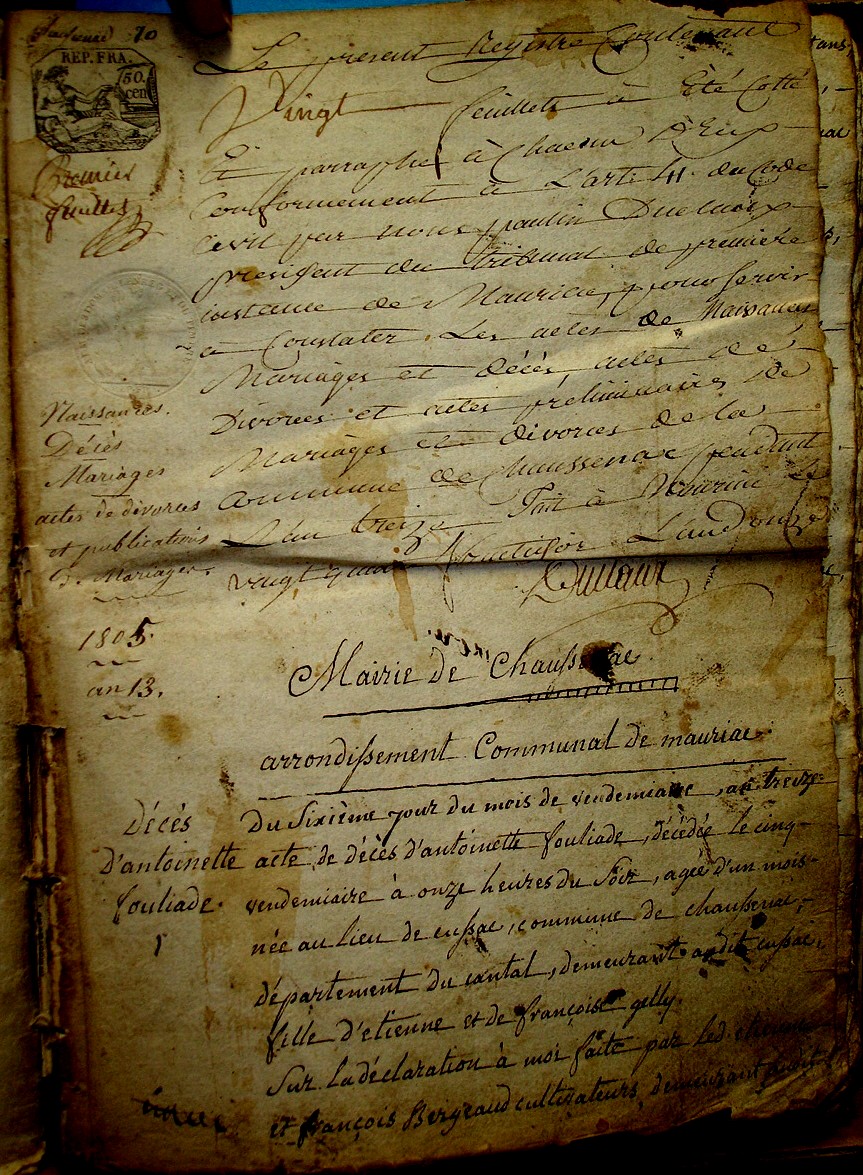 Chaussenac 70
REP. FRA.
50. cen
Premier
feuillet
Le present Registre Contenant
Vingt feuillets à Eté Cotté
Et parraphé à Chacun D'Eux
Conformement à L'art. 41. du Code
Civil par nous paulin Duclaux
president du tribunal de premiere
instance de Mauriac, pour servir
à Constater Les actes de Naissances
Mariages et décès, actes de
Divorces et actes préliminaires de
Mariages et divorces de la
Commune de Chaussenac pendant
L'an treize Fait à Mauriac Le
vingt quatre fructidor L'an Douze
Duclaux
Naissances.
Décès
Mariages
actes de divorces
et publications
de Mariages.
1805.
an 13.
Mairie de Chaussenac
arrondissement Communal de mauriac
Décès
D'antoinette
fouliade.
1
Du Sixième jour du mois de vendemiaire, an treize
acte de décès d'antoinette fouliade, décédée le cinq
vendemiaire à onze heures du Soir, agée d'un mois
née au lieu de cussac, commune de chaussenac,
département du cantal, demeurant audit cussac,
fille d'etienne et de françoise gelly.
Sur la déclaration à moi faite par led. etienne
et françois Bergeaud cultivateurs, demeurant audit